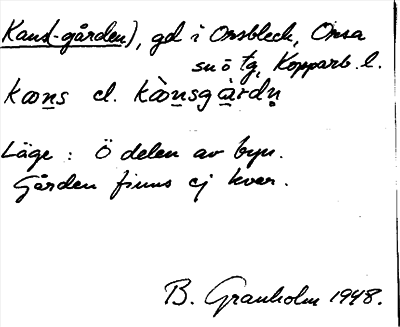 Kans(-gården), gd i Onsbleck, Orsa
sn ö tg, Kopparb. l.
kɷns el. kɷ̀nsgàrdṇ
Läge : Ö delen av byn.
Gården finns ej kvar.
B. Granholm 1948.